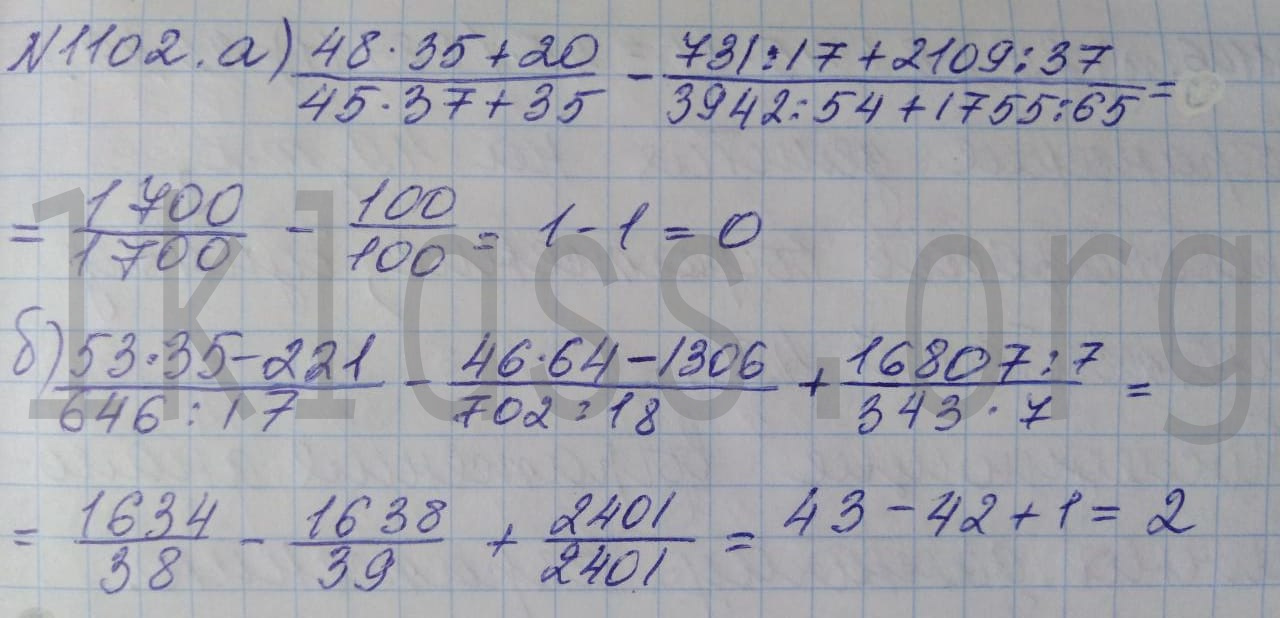 N1102. а) (48·35+20)/(45·37+35) - (731:17+2109:37)/(3942:54+1755:65) =
= 1700/1700 - 100/100 = 1-1=0
б) (53·35-221)/(646:17) - (46·64-1306)/(702:18) + (16807:7)/(343·7) =
= 1634/38 - 1638/39 + 2401/2401 = 43-42+1= 2
1klass.org